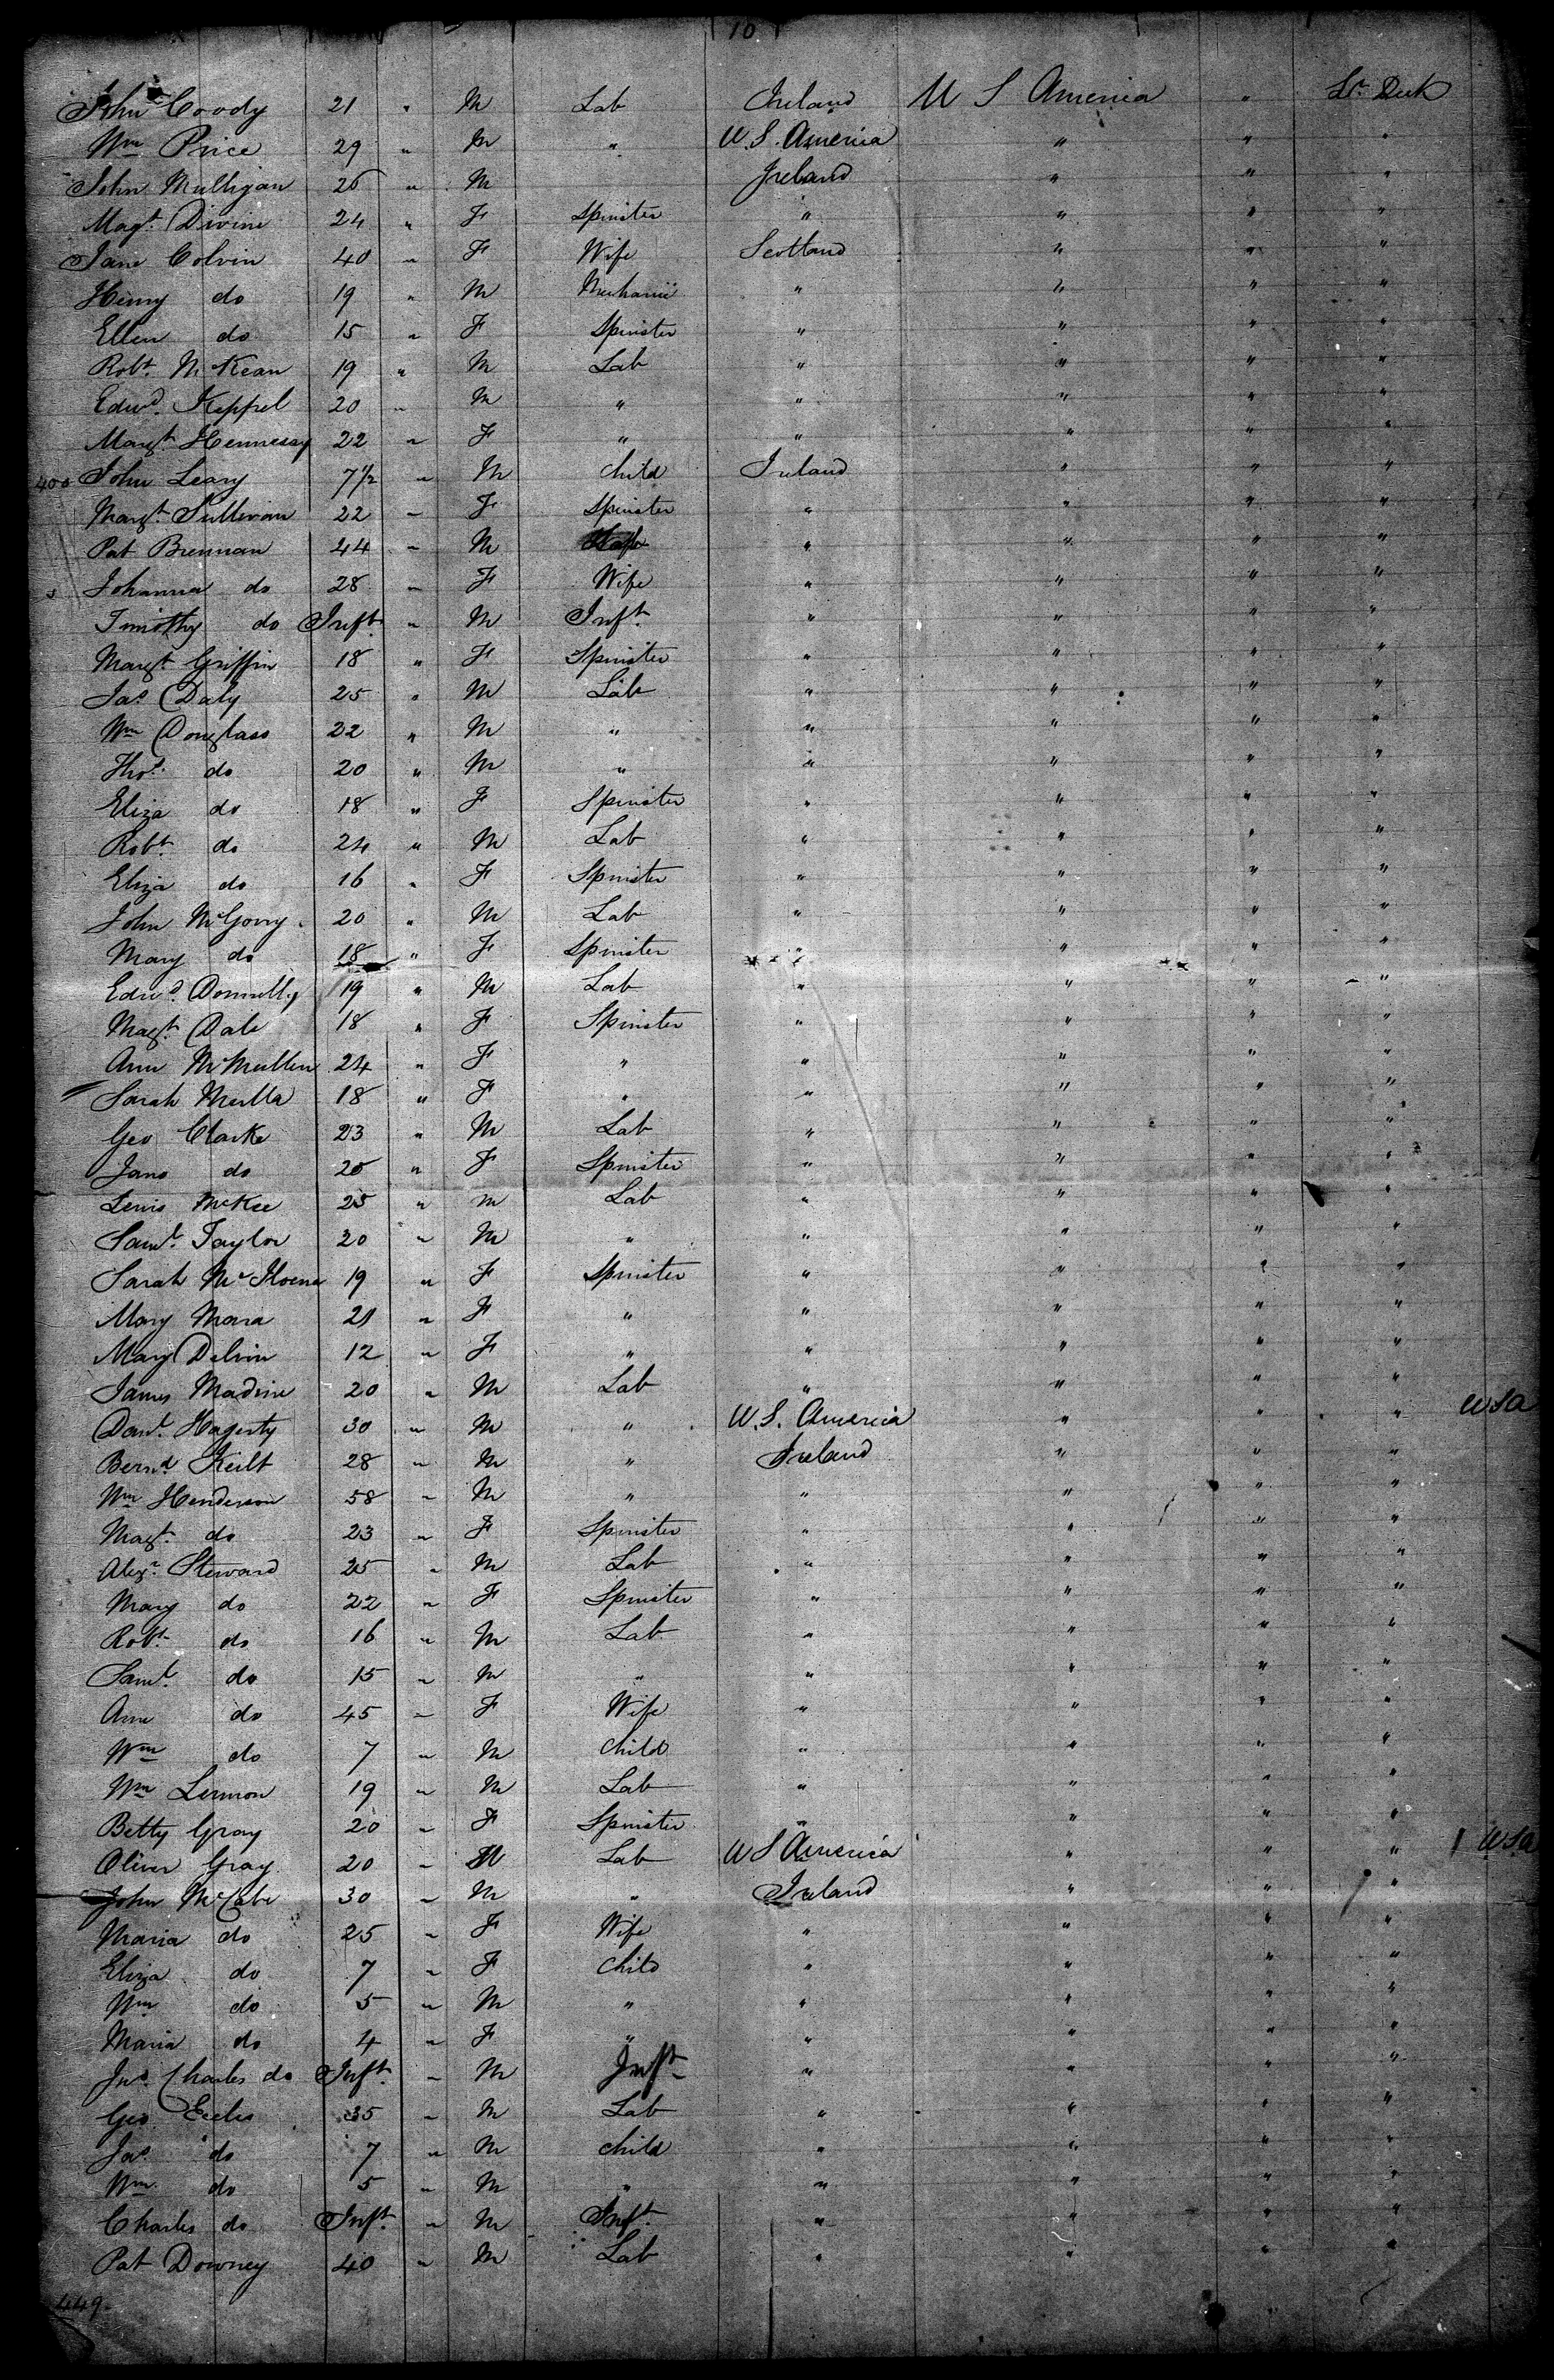 10
John Coody 21 " M Lab Ireland U S America " Lr. Deck
Wm Price 29 " M " U.S. America " " "
John Mulligan 26 " M Ireland " " "
Magt. Divine 24 " F Spinster " " " "
Jane Colvin 40 " F Wife Scotland " " "
Henry do 19 " M Mechanic " " " "
Ellen do 15 " F Spinster " " " "
Robt. McKean 19 " M Lab " " " "
Edwd. Keppel 20 " M " " " " "
Margt. Hennessy 22 " F " " " " "
400 John Leary 7 1/2 " M Child Ireland " " "
Margt. Sullivan 22 " F Spinster " " " "
Pat Brennan 44 " M " " " "
Johanna do 28 " F Wife " " " "
Timothy do Inft. " M Inft. " " " "
Margt Griffin 18 " F Spinster " " " "
Jas. Daly 25 " M Lab " " " "
Wm Douglass 22 " M " " " " "
Thos. do 20 " M " " " " "
Eliza do 18 " F Spinster " " " "
Robt. do 24 " M Lab " " " "
Eliza do 16 " F Spinster " " " "
John McGorry 20 " M Lab " " " "
Mary do 18 " F Spinster " " " "
Edwd. Donnelly 19 " M Lab " " " "
Magt. Dale 18 " F Spinster " " " "
Ann McMullen 24 " F " " " " "
Sarah Mulla 18 " F " " " " "
Geo Clarke 23 " M Lab " " " "
Jane do 20 " F Spinster " " " "
Lewis McKee 25 " M Lab " " " "
Saml. Taylor 20 " M " " " " "
Sarah McIlvena 19 " F Spinster " " " "
Mary Mara 21 " F " " " " "
Mary Delvin 12 " F " " " " "
James Madine 20 " M Lab " " " "
Danl. Hagerty 30 " M " U.S. America " " " USA
Bernd. Keilt 28 " M " Ireland " " "
Wm Henderson 58 " M " " " " "
Magt. do 23 " F Spinster " " " "
Alexr. Steward 25 " M Lab " " " "
Mary do 22 " F Spinster " " " "
Robt. do 16 " M Lab " " " "
Saml. do 15 " M " " " " "
Ann do 45 " F Wife " " " "
Wm do 7 " M Child " " " "
Wm Lemon 19 " M Lab " " " "
Betty Gray 20 " F Spinster " " " "
Oliver Gray 20 " M Lab U S America " " " 1 USA
John McCabe 30 " M " Ireland " " "
Maria do 25 " F Wife " " " "
Eliza do 7 " F Child " " " "
Wm do 5 " M " " " " "
Maria do 4 " F " " " " "
Jno. Charles do Inft. " M Inft " " " "
Geo Eccles 35 " M Lab " " " "
Jas. do 7 " M Child " " " "
Wm do 5 " M " " " " "
Charles do Inft. " M Inft. " " " "
Pat Downey 40 " M Lab " " " "
449